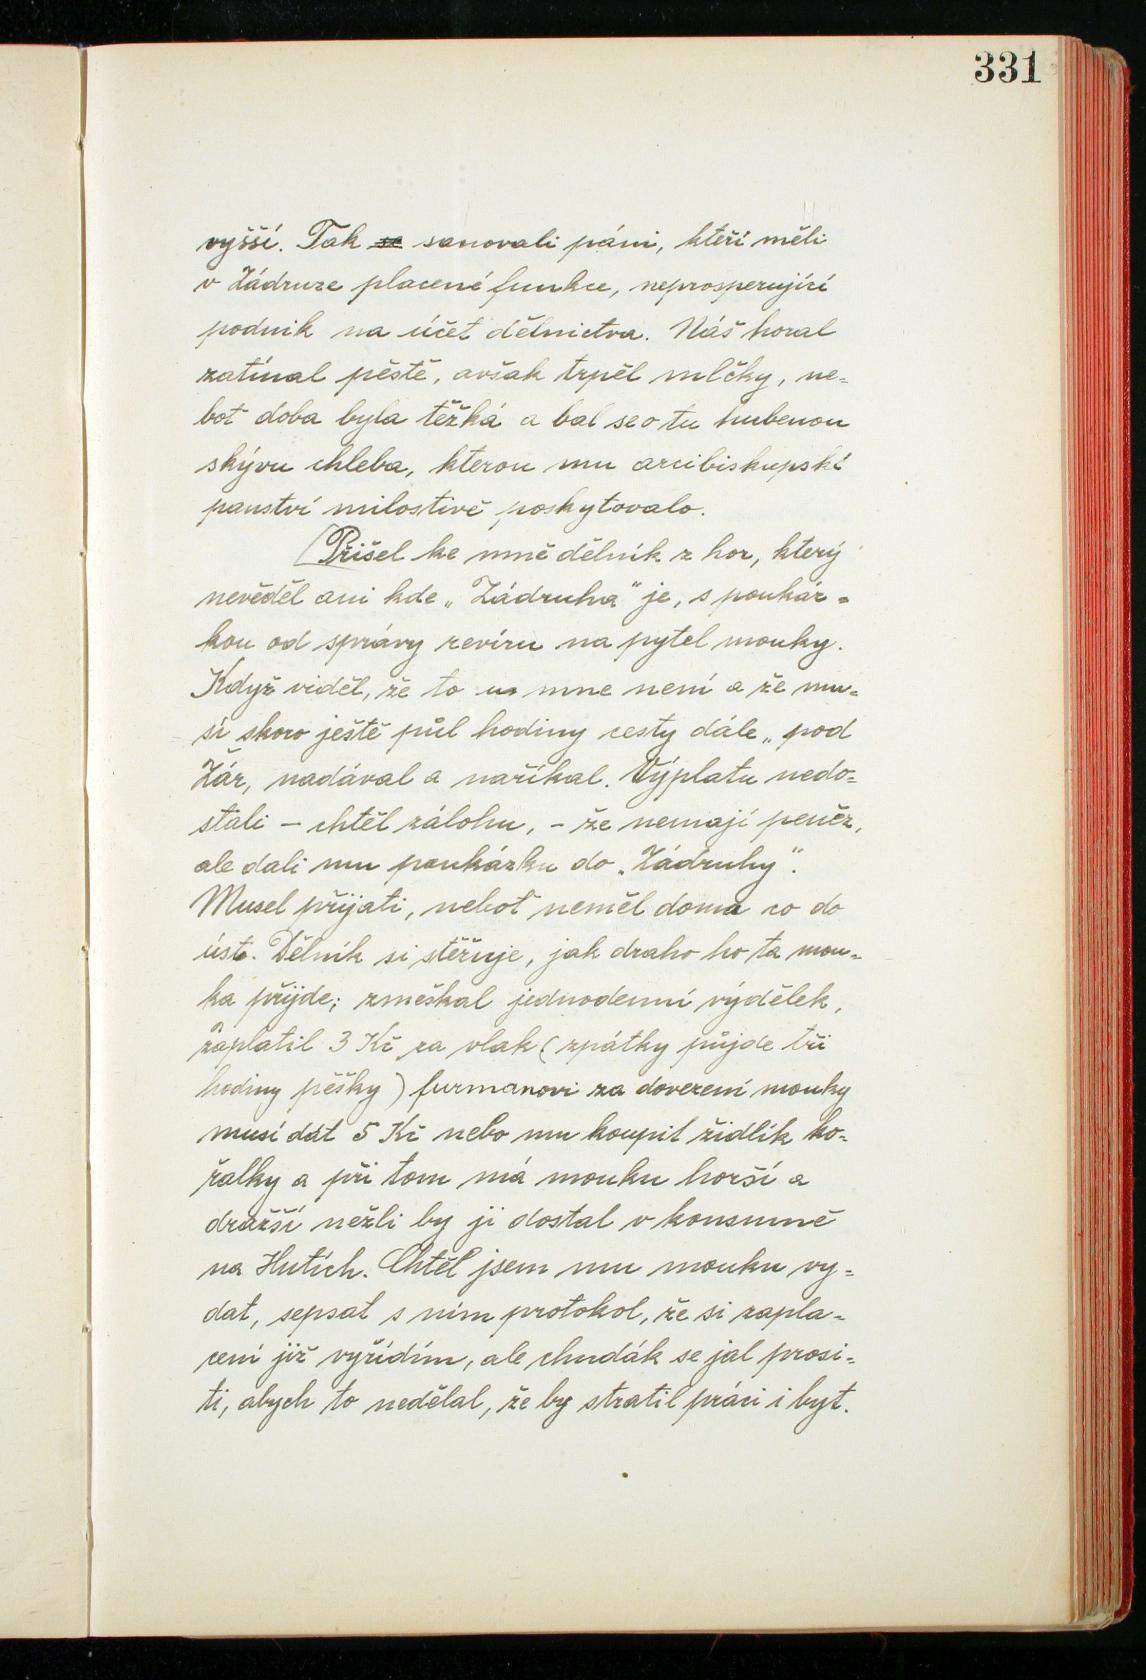 331
vyšší. Tak se sanovali páni, kteří měli
v Zádruze placené funkce, neprosperující
podnik na účet dělnictva. Náš horal
zatínal pěstě, avšak trpěl mlčky, ne=
boť doba byla těžká a bal se o tu hubenou
skývu chleba, kterou mu arcibiskupské
panství milostivě poskytovalo.
Přišel ke mně dělník z hor, který
nevěděl ani kde „Zádruha" je, s poukáz=
kou od správy revíru na pytel mouky.
Když viděl, že to u mne není a že mu=
sí skoro ještě půl hodiny cesty dále „pod
Žár, nadával a naříkal. Výplatu nedo=
stali – chtěl zálohu, – že nemají peněz,
ale dali mu poukázku do „Zádruhy".
Musel přijati, neboť neměl doma co do
úst. Dělník si stěžuje, jak draho ho ta mou=
ka přijde; zmeškal jednodenní výdělek,
zaplatil 3 Kč za vlak (zpátky půjde tři
hodiny pěšky) furmanovi za dovezení mouky
musí dát 5 Kč nebo mu koupit židlík ko=
řalky a při tom má mouku horší a
dražší nežli by ji dostal v konsumě
na Hutích. Chtěl jsem mu mouku vy=
dat, sepsat s ním protokol, že si zapla=
cení již vyřídím, ale chudák se jal prosi=
ti, abych to nedělal, že by stratil práci i byt.